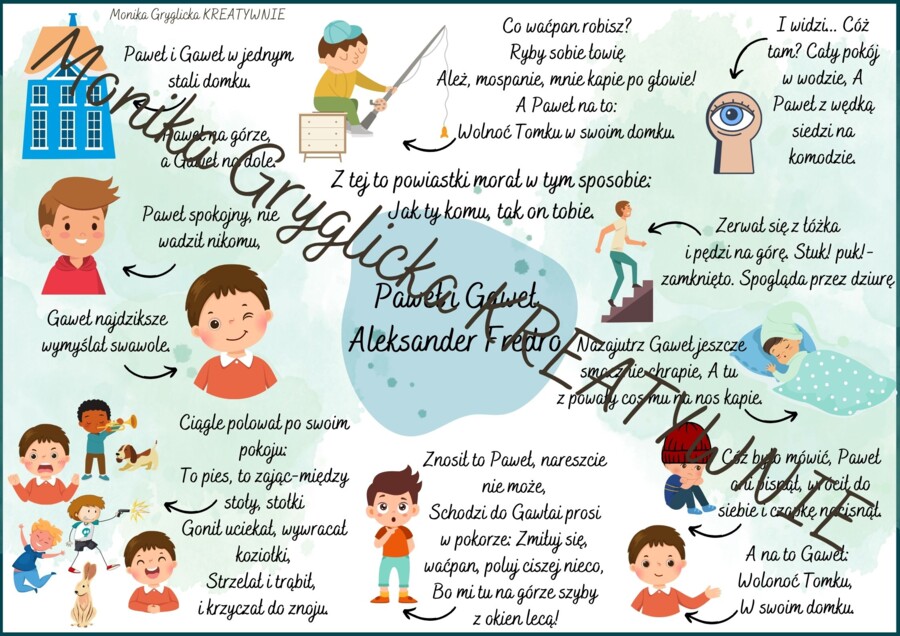 Monika Gryglicka KREATYWNIE
Paweł i Gaweł w jednym
stali domku.
Paweł na górze,
a Gaweł na dole.
Paweł spokojny, nie
wadził nikomu,
Gaweł najdziksze
wymyślał swawole.
Ciągle polował po swoim
pokoju:
To pies, to zając-między
stoły, stołki
Gonił uciekał, wywracał
koziołki,
Strzelał i trąbił,
i krzyczał do znoju.
Znosił to Paweł, nareszcie
nie może,
Schodzi do Gawłai prosi
w pokorze: Zmiłuj się,
waćpan, poluj ciszej nieco,
Bo mi tu na górze szyby
z okien lecą!
A na to Gaweł:
Wolonoć Tomku,
W swoim domku.
Cóż było mówić, Paweł
ani pisnął, wrócił do
siebie i czapkę nacisnął.
Nazajutrz Gaweł jeszcze
smacznie chrapie, A tu
z powały coś mu na nos kapie.
Zerwał się z łóżka
i pędzi na górę. Stuk! puk!-
zamknięto. Spogląda przez dziurę
I widzi... Cóż
tam? Cały pokój
w wodzie, A
Paweł z wędką
siedzi na
komodzie.
Co waćpan robisz?
Ryby sobie łowię
Ależ, mospanie, mnie kapie po głowie!
A Paweł na to:
Wolnoć Tomku w swoim domku.
Z tej to powiastki morał w tym sposobie:
Jak ty komu, tak on tobie.
Paweł i Gaweł
Aleksander Fredro
Monika Gryglicka KREATYWNIE